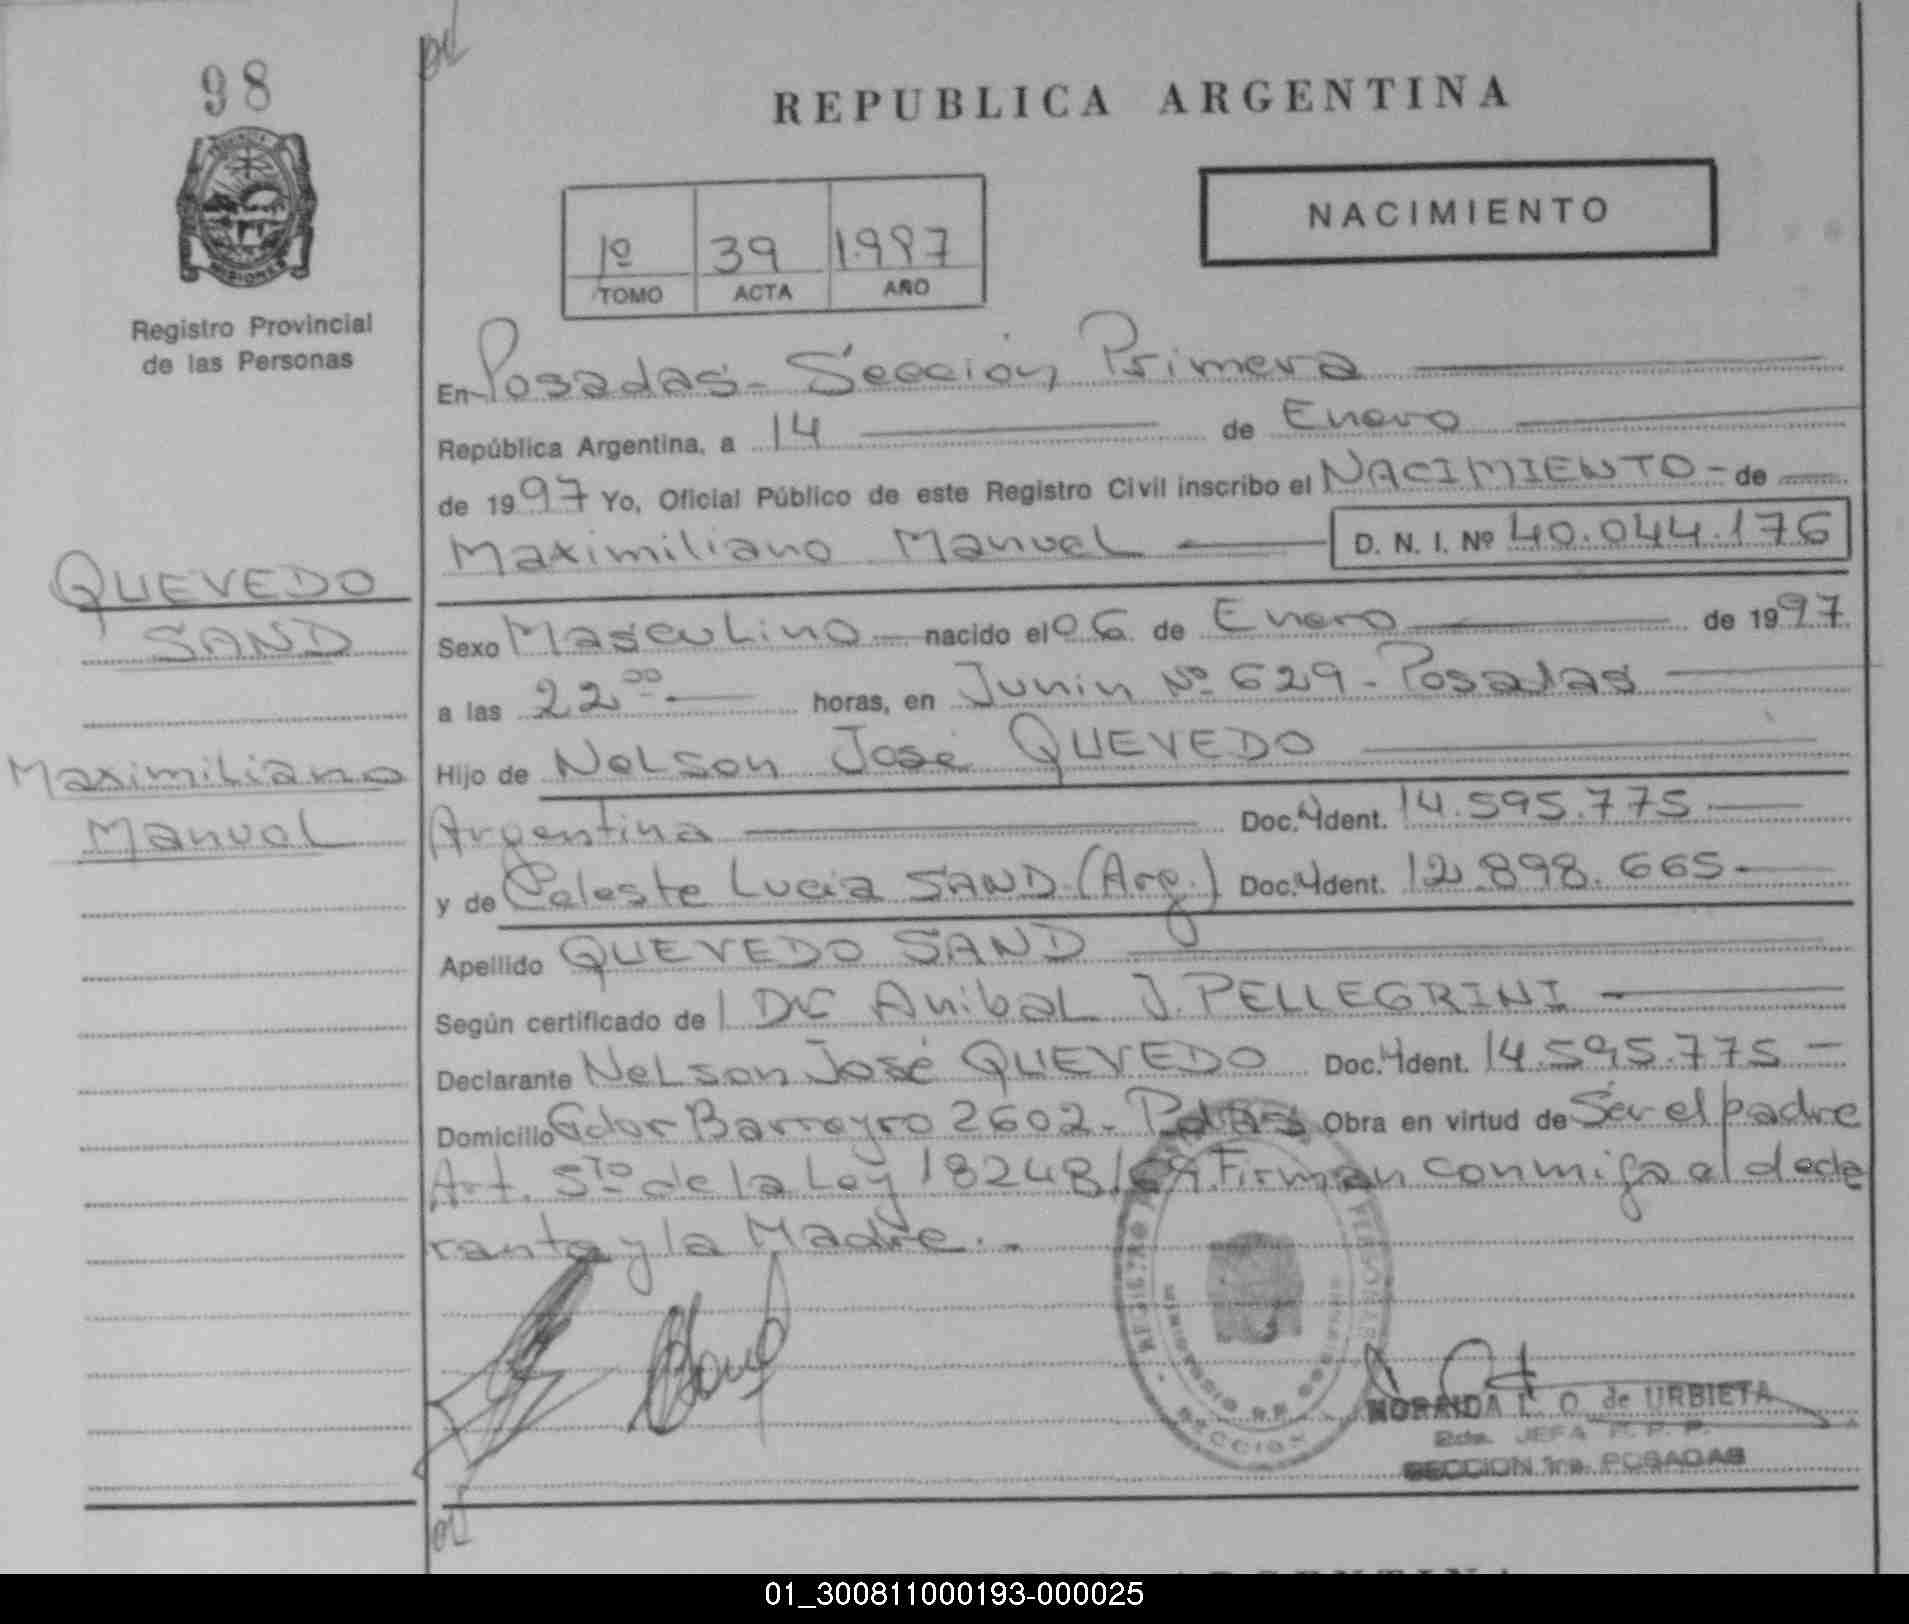 98
MISIONES
Registro Provincial
de las Personas
QUEVEDO
SAND
Maximiliano
Manuel
REPUBLICA ARGENTINA
1º 39 1.997
TOMO ACTA AÑO
NACIMIENTO
En Posadas - Sección Primera
República Argentina, a 14 de Enero
de 1997 Yo, Oficial Público de este Registro Civil inscribo el NACIMIENTO - de
Maximiliano Manuel D. N. I. Nº 40.044.176
Sexo Masculino nacido el 06 de Enero de 1997
a las 22 00 horas, en Junin Nº 629 - Posadas
Hijo de Nelson José QUEVEDO
Argentina Doc. Ident. 14.595.775
y de Celeste Lucia SAND (Arg.) Doc. Ident. 12.898.665
Apellido QUEVEDO SAND
Según certificado de Anibal J. PELLEGRINI
Declarante Nelson José QUEVEDO Doc. Ident. 14.595.775
Domicilio Gdor Barreyro 2602 - Pdas Obra en virtud de Ser el padre
Art. 5to de la Ley 18248/69. Firman conmigo el decla
rante y la Madre.
SECCION
NORAIDA L. O. de URBIETA
2da. JEFA R. P. P.
SECCION 1ra. POSADAS
01_300811000193-000025